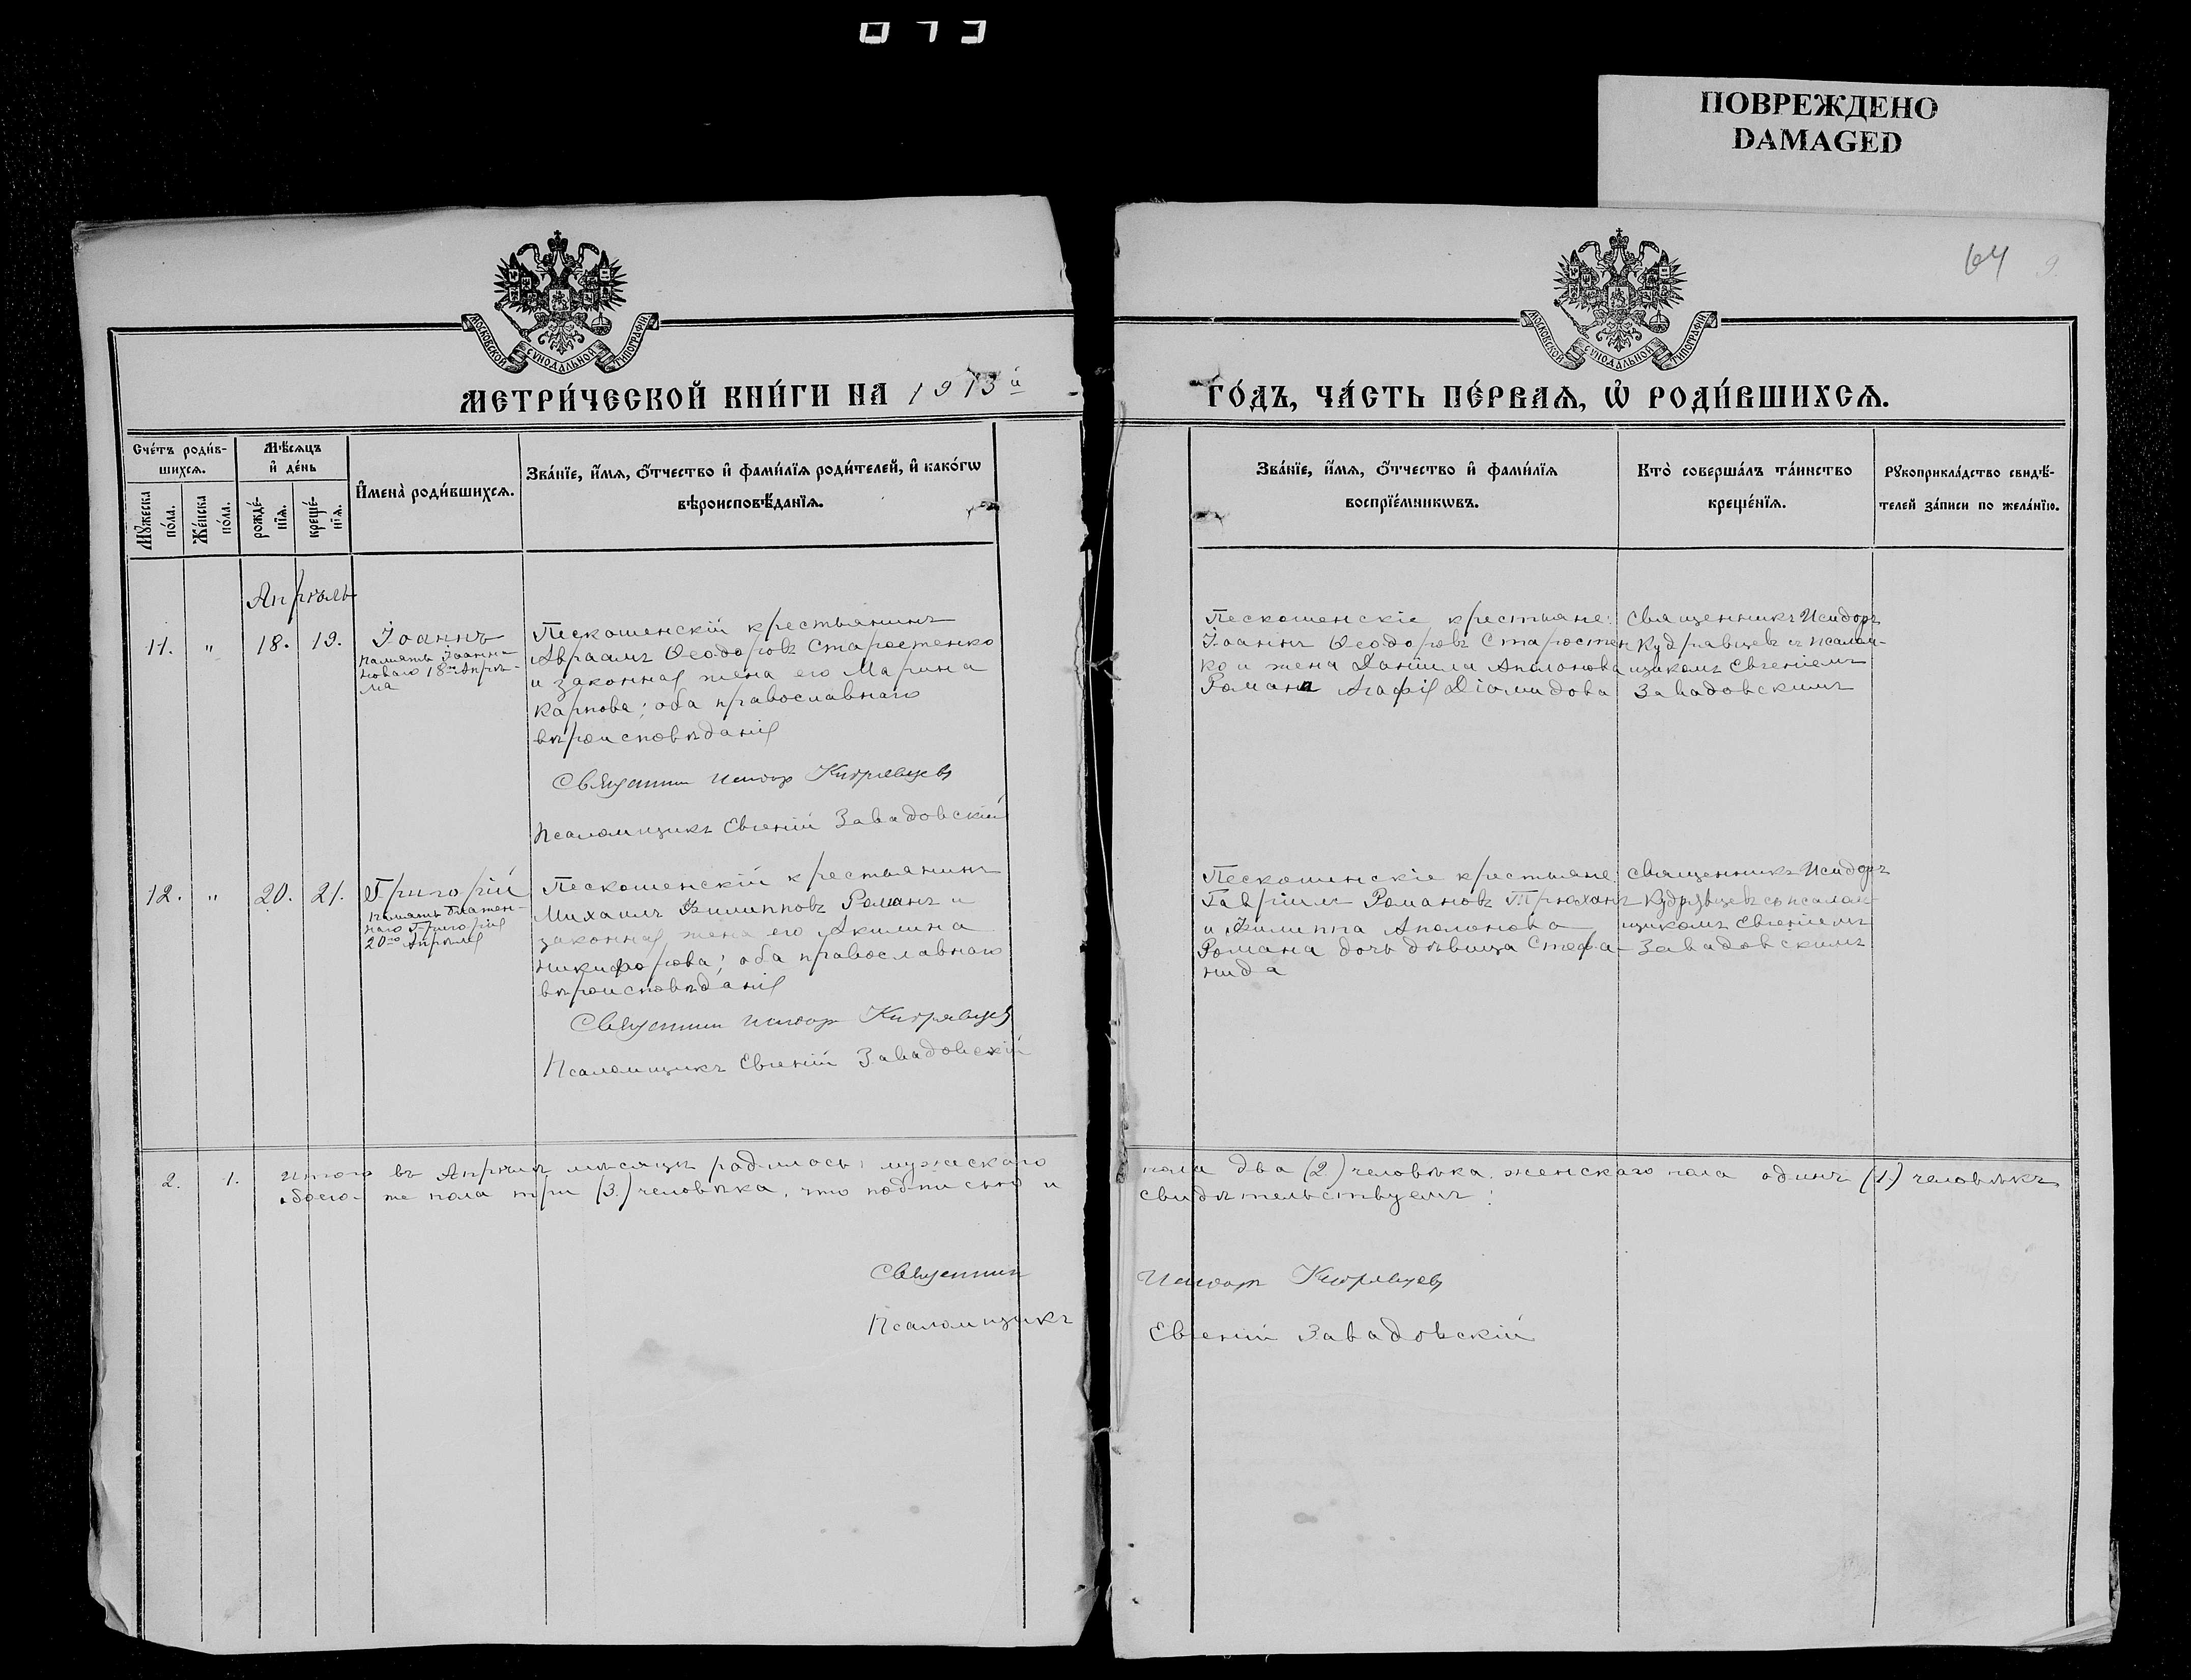 073
ПОВРЕЖДЕНО
DAMAGED
64 9
МОСКОВСКОЙ СѴНОДАЛЬНОЙ ТИПОГРАФІИ
МОСКОВСКОЙ СѴНОДАЛЬНОЙ ТИПОГРАФІИ
МЕТРИ́ЧЕСКОЙ КНИ́ГИ НА 1913й
ГО́ДЪ, ЧА́СТЬ ПЕ́РВАЯ, Ѡ҆ РОДИ́ВШИХСЯ.
Сче́тъ роди́в-
шихсѧ.
Мꙋ́жеска
по́ла.
Же́нска
по́ла.
Мѣ́сѧцъ
и҆ де́нь
рожде́-
нїѧ.
креще́-
нїѧ.
И҆мена̀ роди́вшихсѧ.
Зва́нїе, и҆́мѧ, ѻ҆́тчество и҆ фами́лїѧ роди́телей, и҆ како́гѡ
вѣроисповѣ́данїѧ.
Зва́нїе, и҆́мѧ, ѻ҆́тчество и҆ фами́лїѧ
воспрїе́мникѡвъ.
Кто̀ соверша́лъ та́инство
креще́нїѧ.
Рꙋкоприкла́дство свидѣ́-
телей за́писи по жела́нїю.
Апрѣль
11. " 18. 19.
Іоаннъ
память Іоанна
Новаго 18го Апрѣ-
ля
Пескошенскій крестьянинъ
Авраамъ Ѳеодоровъ Старостенко
и законная жена его Марина
Карпова; оба православнаго
вѣроисповѣданія
Священник Исидор Кудрявцев
Псаломщикъ Евгеній Завадовскій
Пескошенскіе крестьяне:
Іоаннъ Ѳеодоровъ Старостен
ко и жена Даніила Аполонова
Романа Агафія Діомидова
Священникъ Исидоръ
Кудрявцевъ съ псалом-
щикомъ Евгеніемъ
Завадовскимъ
12. " 20. 21.
Григорій
память блажен-
наго Григорія
20го Апрѣля
Пескошенскій крестьянинъ
Михаилъ Филипповъ Романъ и
законная жена его Акилина
Никифорова; оба православнаго
вѣроисповѣданія
Священник Исидор Кудрявцев
Псаломщикъ Евгеній Завадовскій
Пескошенскіе крестьяне:
Гавріилъ Романовъ Трюханъ
и Филиппа Аполонова
Романа дочь дѣвица Стефа-
нида
Священникъ Исидоръ
Кудрявцевъ съ псалом-
щикомъ Евгеніемъ
Завадовскимъ
2. 1. Итого въ Апрѣлѣ мѣсяцѣ родилось: мужескаго пола два (2.) человѣка. женскаго пола одинъ (1.) человѣкъ,
обоего-же пола три (3.) человѣка, что подписью и свидѣтельствуемъ:
Священник Исидор Кудрявцев
Псаломщикъ Евгеній Завадовскій